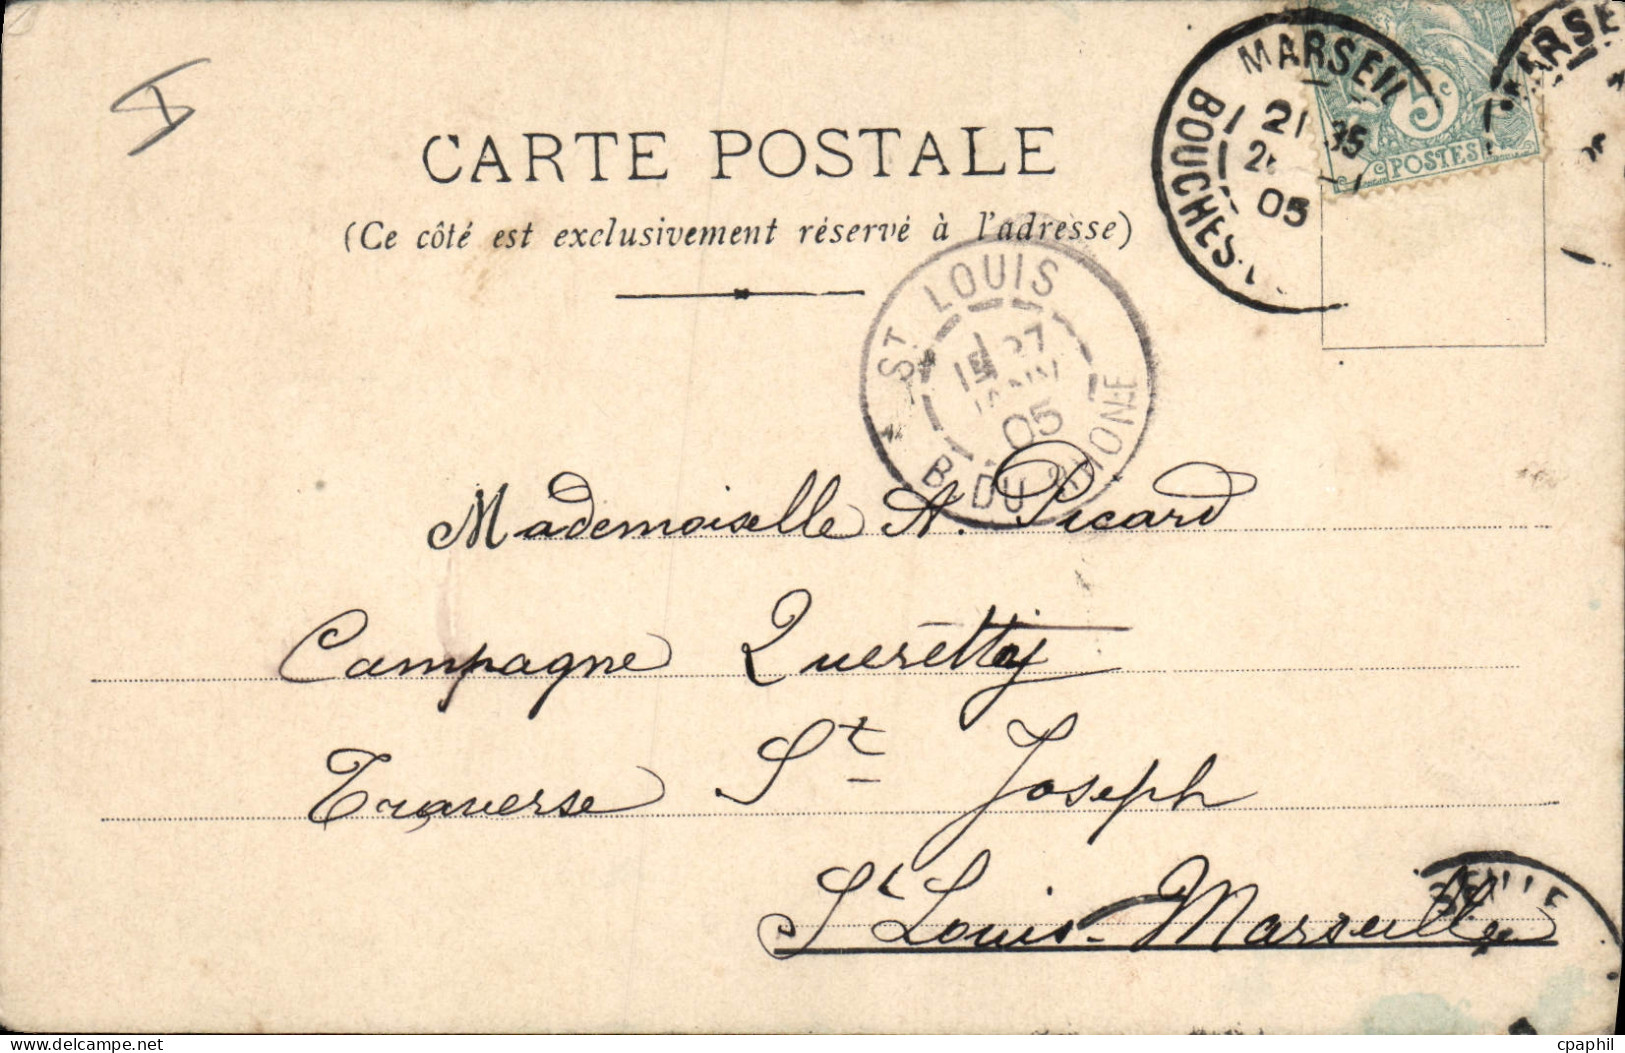 CARTE POSTALE
(Ce côté est exclusivement réservé à l'adresse)
MARSEIL
21 35
05
BOUCHES
5c
POSTES
ARSE
ST LOUIS
15 27
05
B. DU RHONE
Mademoiselle A. Picard
Campagne
Traverse St Joseph
St Louis-Marseille
EILLE
delcampe.net
cpaphil